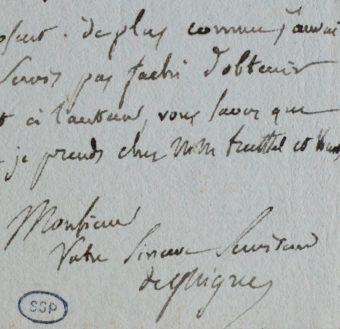 de plus comme j'aurai
serois pas faché d'obtenir
à l'auteur, vous savez que
je prends chez MM treuttel et
Monsieur
Votre Sincere Serviteur
deguignes
SSP